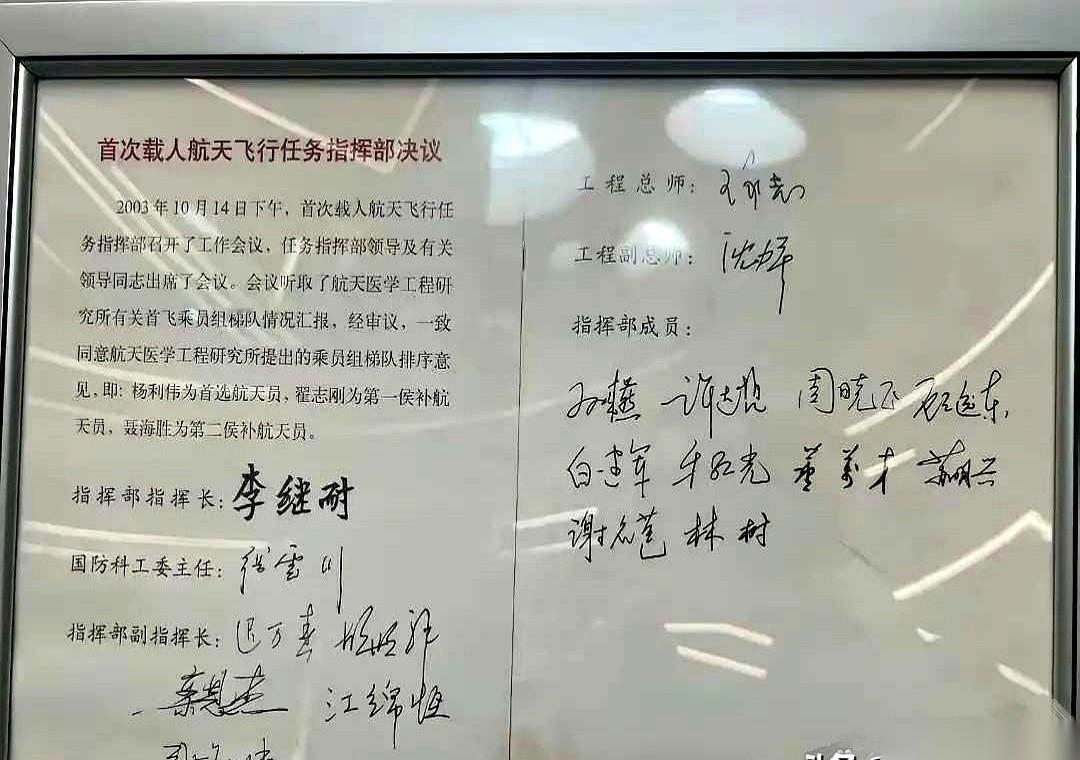 首次载人航天飞行任务指挥部决议
2003年10月14日下午，首次载人航天飞行任
务指挥部召开了工作会议，任务指挥部领导及有关
领导同志出席了会议。会议听取了航天医学工程研
究所有关首飞乘员组梯队情况汇报，经审议，一致
同意航天医学工程研究所提出的乘员组梯队排序意
见，即：杨利伟为首选航天员、翟志刚为第一侯补航
天员、聂海胜为第二侯补航天员。
指挥部指挥长：李继耐
国防科工委主任：张云川
指挥部副指挥长：迟万春
江绵恒
工程总师：王永志
工程副总师：沈
指挥部成员：
孙 许达哲 周晓飞
白 牛红光 董 才
谢名苞 林树